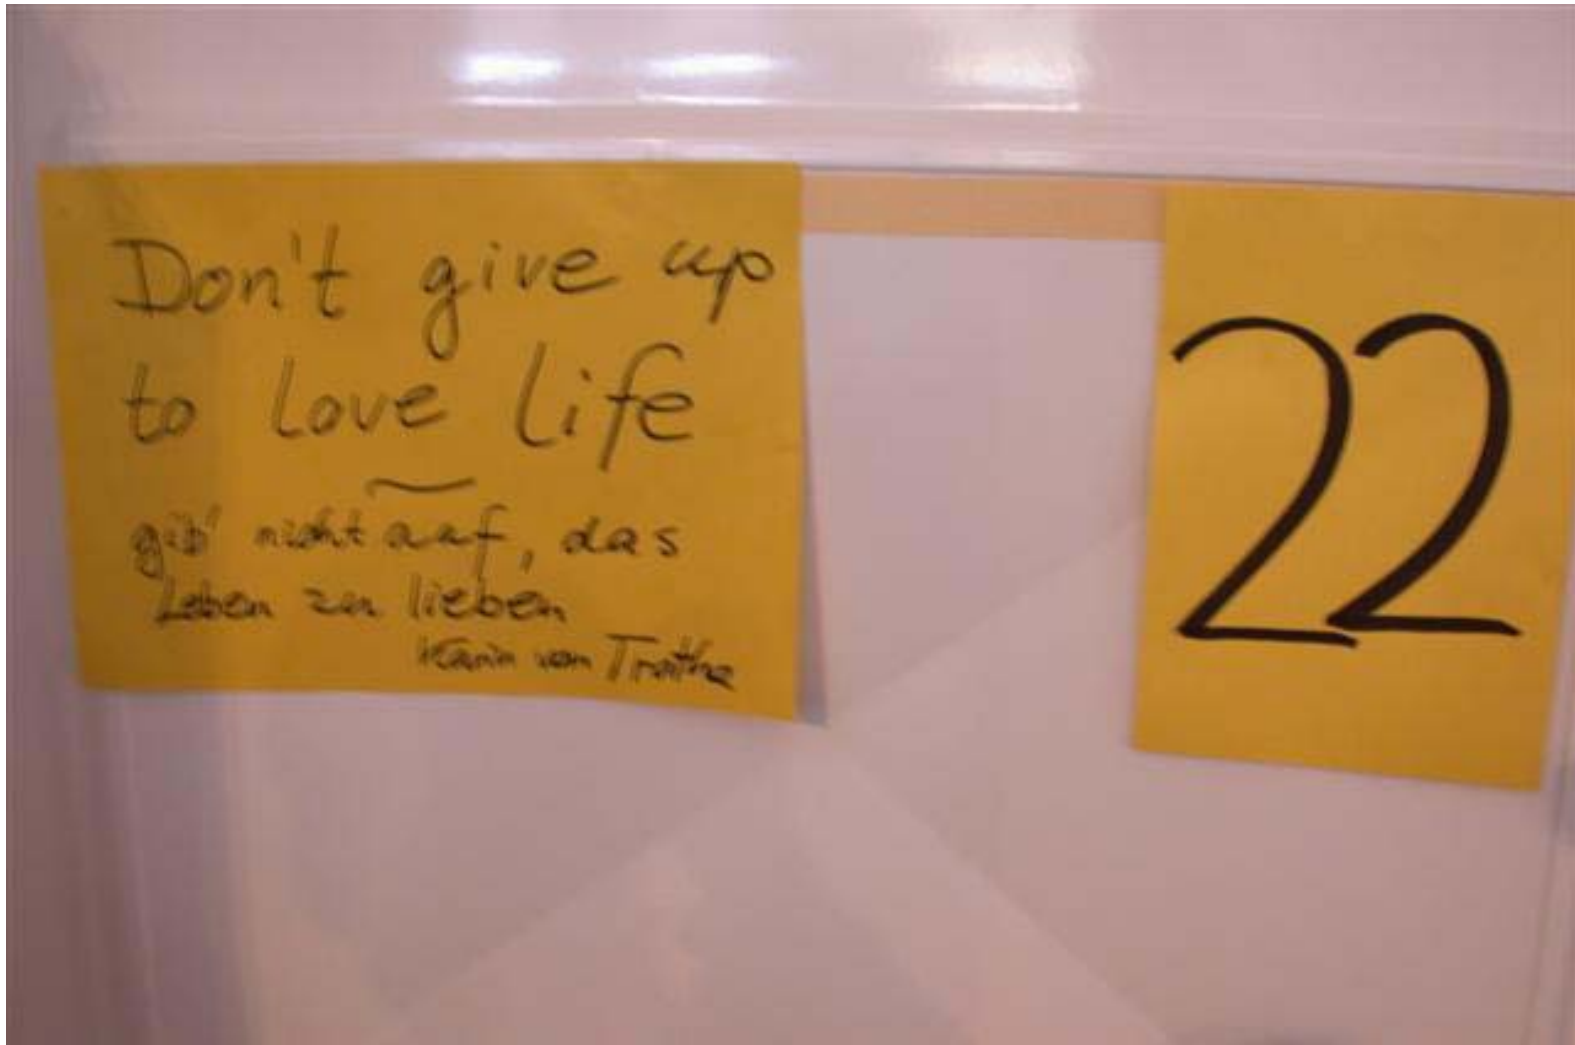 Don't give up
to love life
gib' nicht auf, das
Leben zu lieben
Karin von Trotha
22